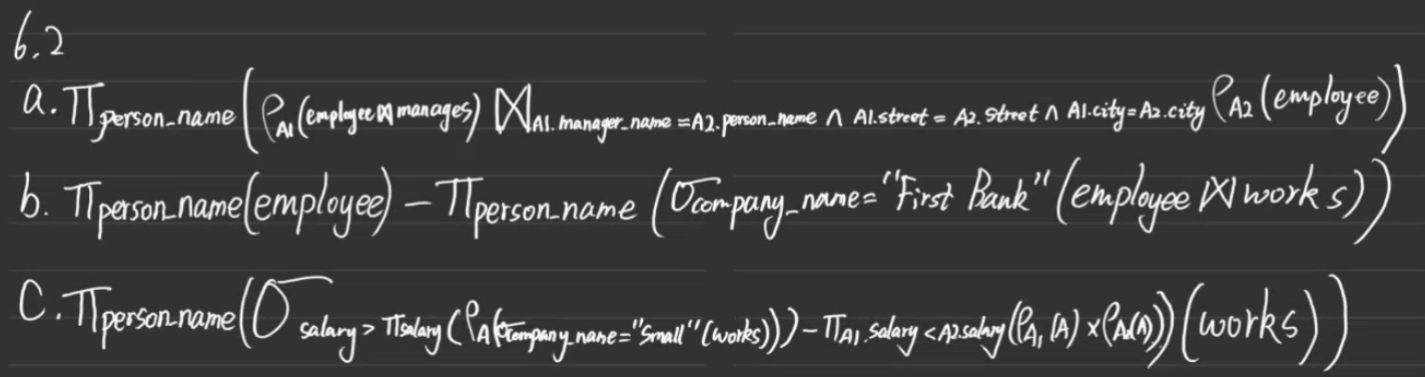 6.2
a. Π person_name (ρ A1 (employee ⋈ manages) ⋈ A1.manager_name = A2.person_name ∧ A1.street = A2.street ∧ A1.city = A2.city ρ A2 (employee))
b. Π person_name (employee) − Π person_name (σ company_name = "First Bank" (employee ⋈ works))
C. Π person_name (σ salary > Π salary (ρ A (σ company_name = "Small" (works))) − Π A1.salary < A2.salary (ρ A1 (A) × ρ A2 (A)) (works))